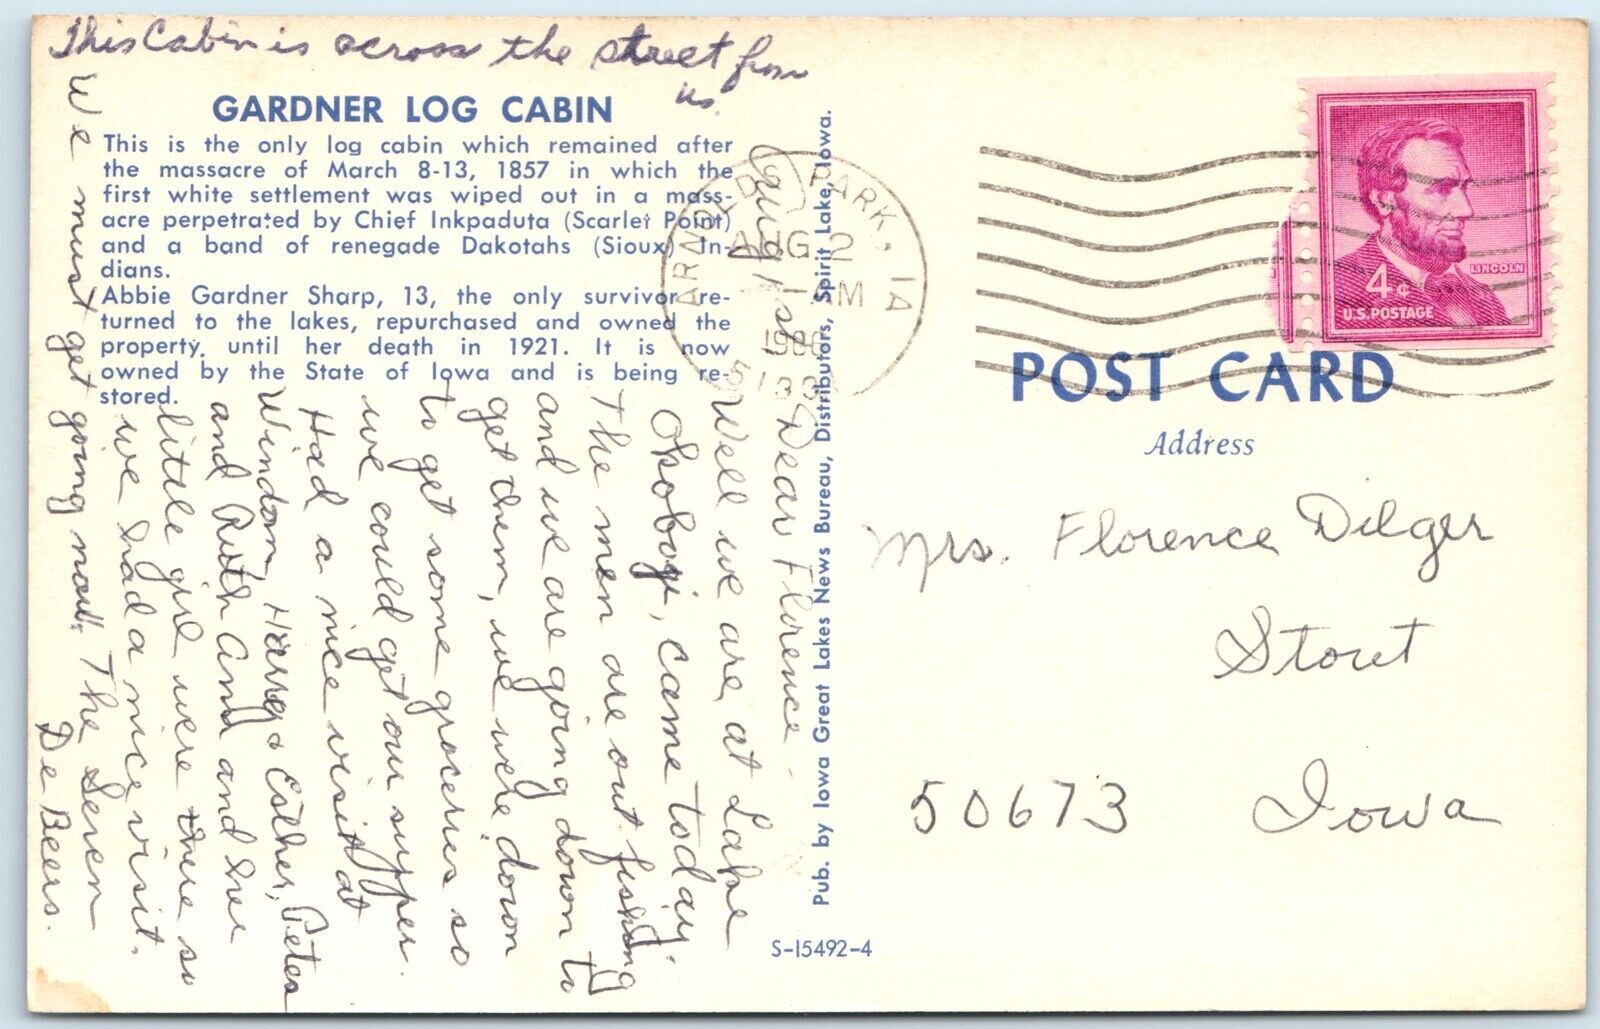 This Cabin is across the street from
us.
GARDNER LOG CABIN
This is the only log cabin which remained after
the massacre of March 8-13, 1857 in which the
first white settlement was wiped out in a mass-
acre perpetrated by Chief Inkpaduta (Scarlet Point)
and a band of renegade Dakotahs (Sioux) In-
dians.
Abbie Gardner Sharp, 13, the only survivor re-
turned to the lakes, repurchased and owned the
property, until her death in 1921. It is now
owned by the State of Iowa and is being re-
stored.
Aug 1st
Dear Florence -
Well we are at Lake
Okoboji, came today.
The men are out fishing
and we are going down to
get them, we were down
to get some groceries so
we could get our supper.
Had a nice visit at
Windom, Harry & Esther, Peter
and Ruth Ann and her
little girl were there so
we had a nice visit.
We must get going now. The Seven
De Beers.
Pub. by Iowa Great Lakes News Bureau, Distributors, Spirit Lake, Iowa.
S-15492-4
ARNOLDS PARK, IA
AUG 2
AM
1966
5133
4¢
LINCOLN
U.S. POSTAGE
POST CARD
Address
Mrs. Florence Dilger
Stout
50673 Iowa